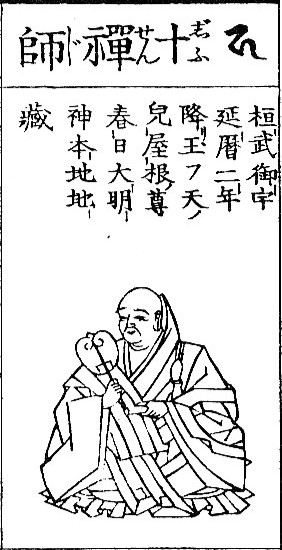 十禪師
じふせんじ
桓武御宇
延暦二年
降リ王フ天ノ
兒屋根尊
春日大明
神本地地
藏